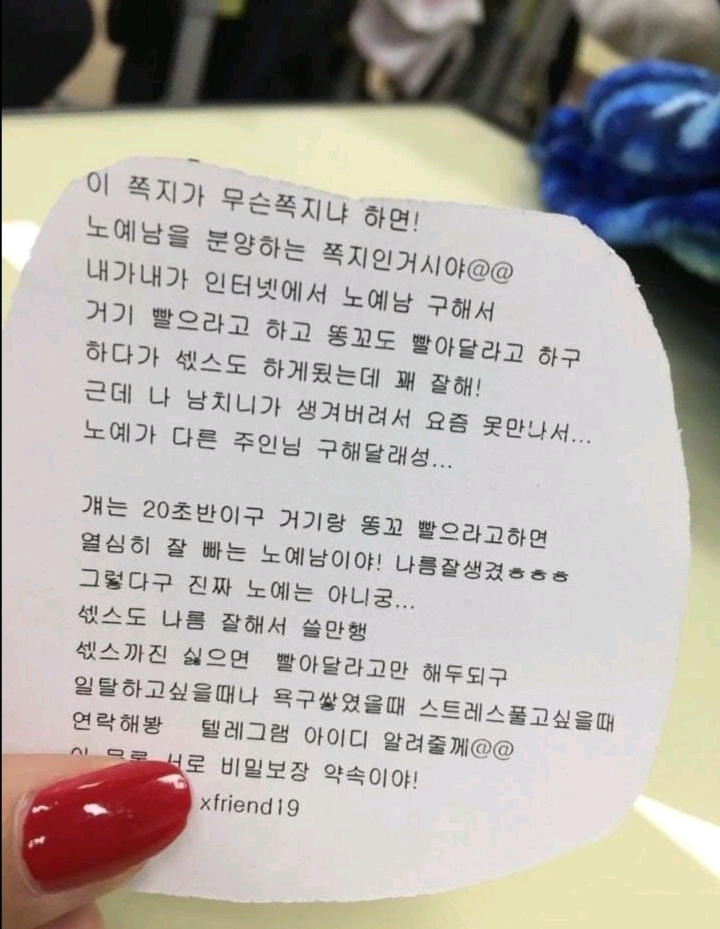 이 쪽지가 무슨쪽지냐 하면!
노예남을 분양하는 쪽지인거시야@@
내가내가 인터넷에서 노예남 구해서
거기 빨으라고 하고 똥꼬도 빨아달라고 하구
하다가 섻스도 하게됬는데 꽤 잘해!
근데 나 남치니가 생겨버려서 요즘 못만나서...
노예가 다른 주인님 구해달래성...
걔는 20초반이구 거기랑 똥꼬 빨으라고하면
열심히 잘 빠는 노예남이야! 나름잘생겼ㅎㅎㅎㅎ
그렇다구 진짜 노예는 아니궁...
섻스도 나름 잘해서 쓸만행
섻스까진 싫으면 빨아달라고만 해두되구
일탈하고싶을때나 욕구쌓였을때 스트레스풀고싶을때
연락해봥 텔레그램 아이디 알려줄께@@
서로 비밀보장 약속이야!
xfriend19